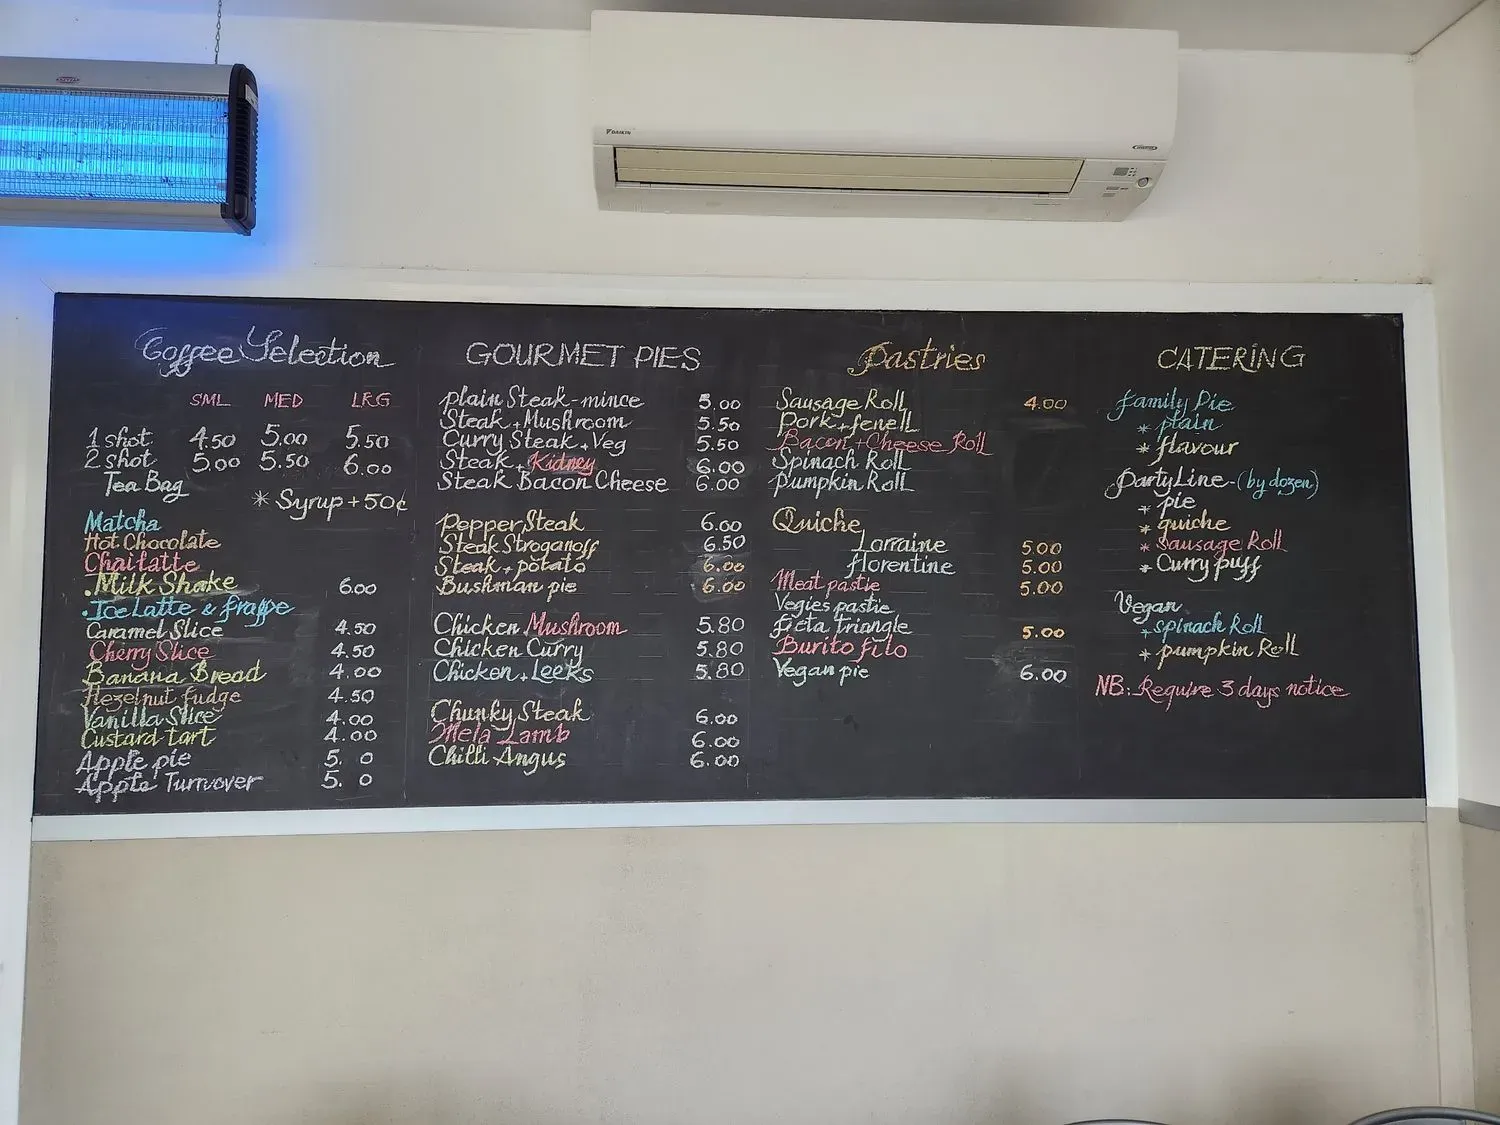 DAIKIN
Coffee Selection
SML MED LRG
1 shot 4.50 5.00 5.50
2 shot 5.00 5.50 6.00
Tea Bag
* Syrup + 50¢
Matcha
Hot Chocolate
Chai latte
.Milk Shake 6.00
.Ice Latte & frappe
Caramel Slice 4.50
Cherry Slice 4.50
Banana Bread 4.00
Hezelnut fudge 4.50
Vanilla Slice 4.00
Custard tart 4.00
Apple pie 5. 0
Apple Turnover 5. 0
GOURMET PIES
plain Steak-mince 5.00
Steak + Mushroom 5.50
Curry Steak + Veg 5.50
Steak + Kidney 6.00
Steak Bacon Cheese 6.00
Pepper Steak 6.00
Steak Stroganoff 6.50
Steak + potato 6.00
Bushman pie 6.00
Chicken Mushroom 5.80
Chicken Curry 5.80
Chicken + Leeks 5.80
Chunky Steak 6.00
Mela Lamb 6.00
Chilli Angus 6.00
Pastries
Sausage Roll 4.00
Pork + fenell
Bacon + Cheese Roll
Spinach Roll
Pumpkin Roll
Quiche
Lorraine 5.00
florentine 5.00
Meat pastie 5.00
Vegies pastie
fieta Triangle 5.00
Burito filo
Vegan pie 6.00
CATERING
family Pie
* plain
* flavour
Party Line - (by dozen)
* pie
* quiche
* Sausage Roll
* Curry puff
Vegan
* spinach Roll
* pumpkin Roll
NB: Require 3 days notice